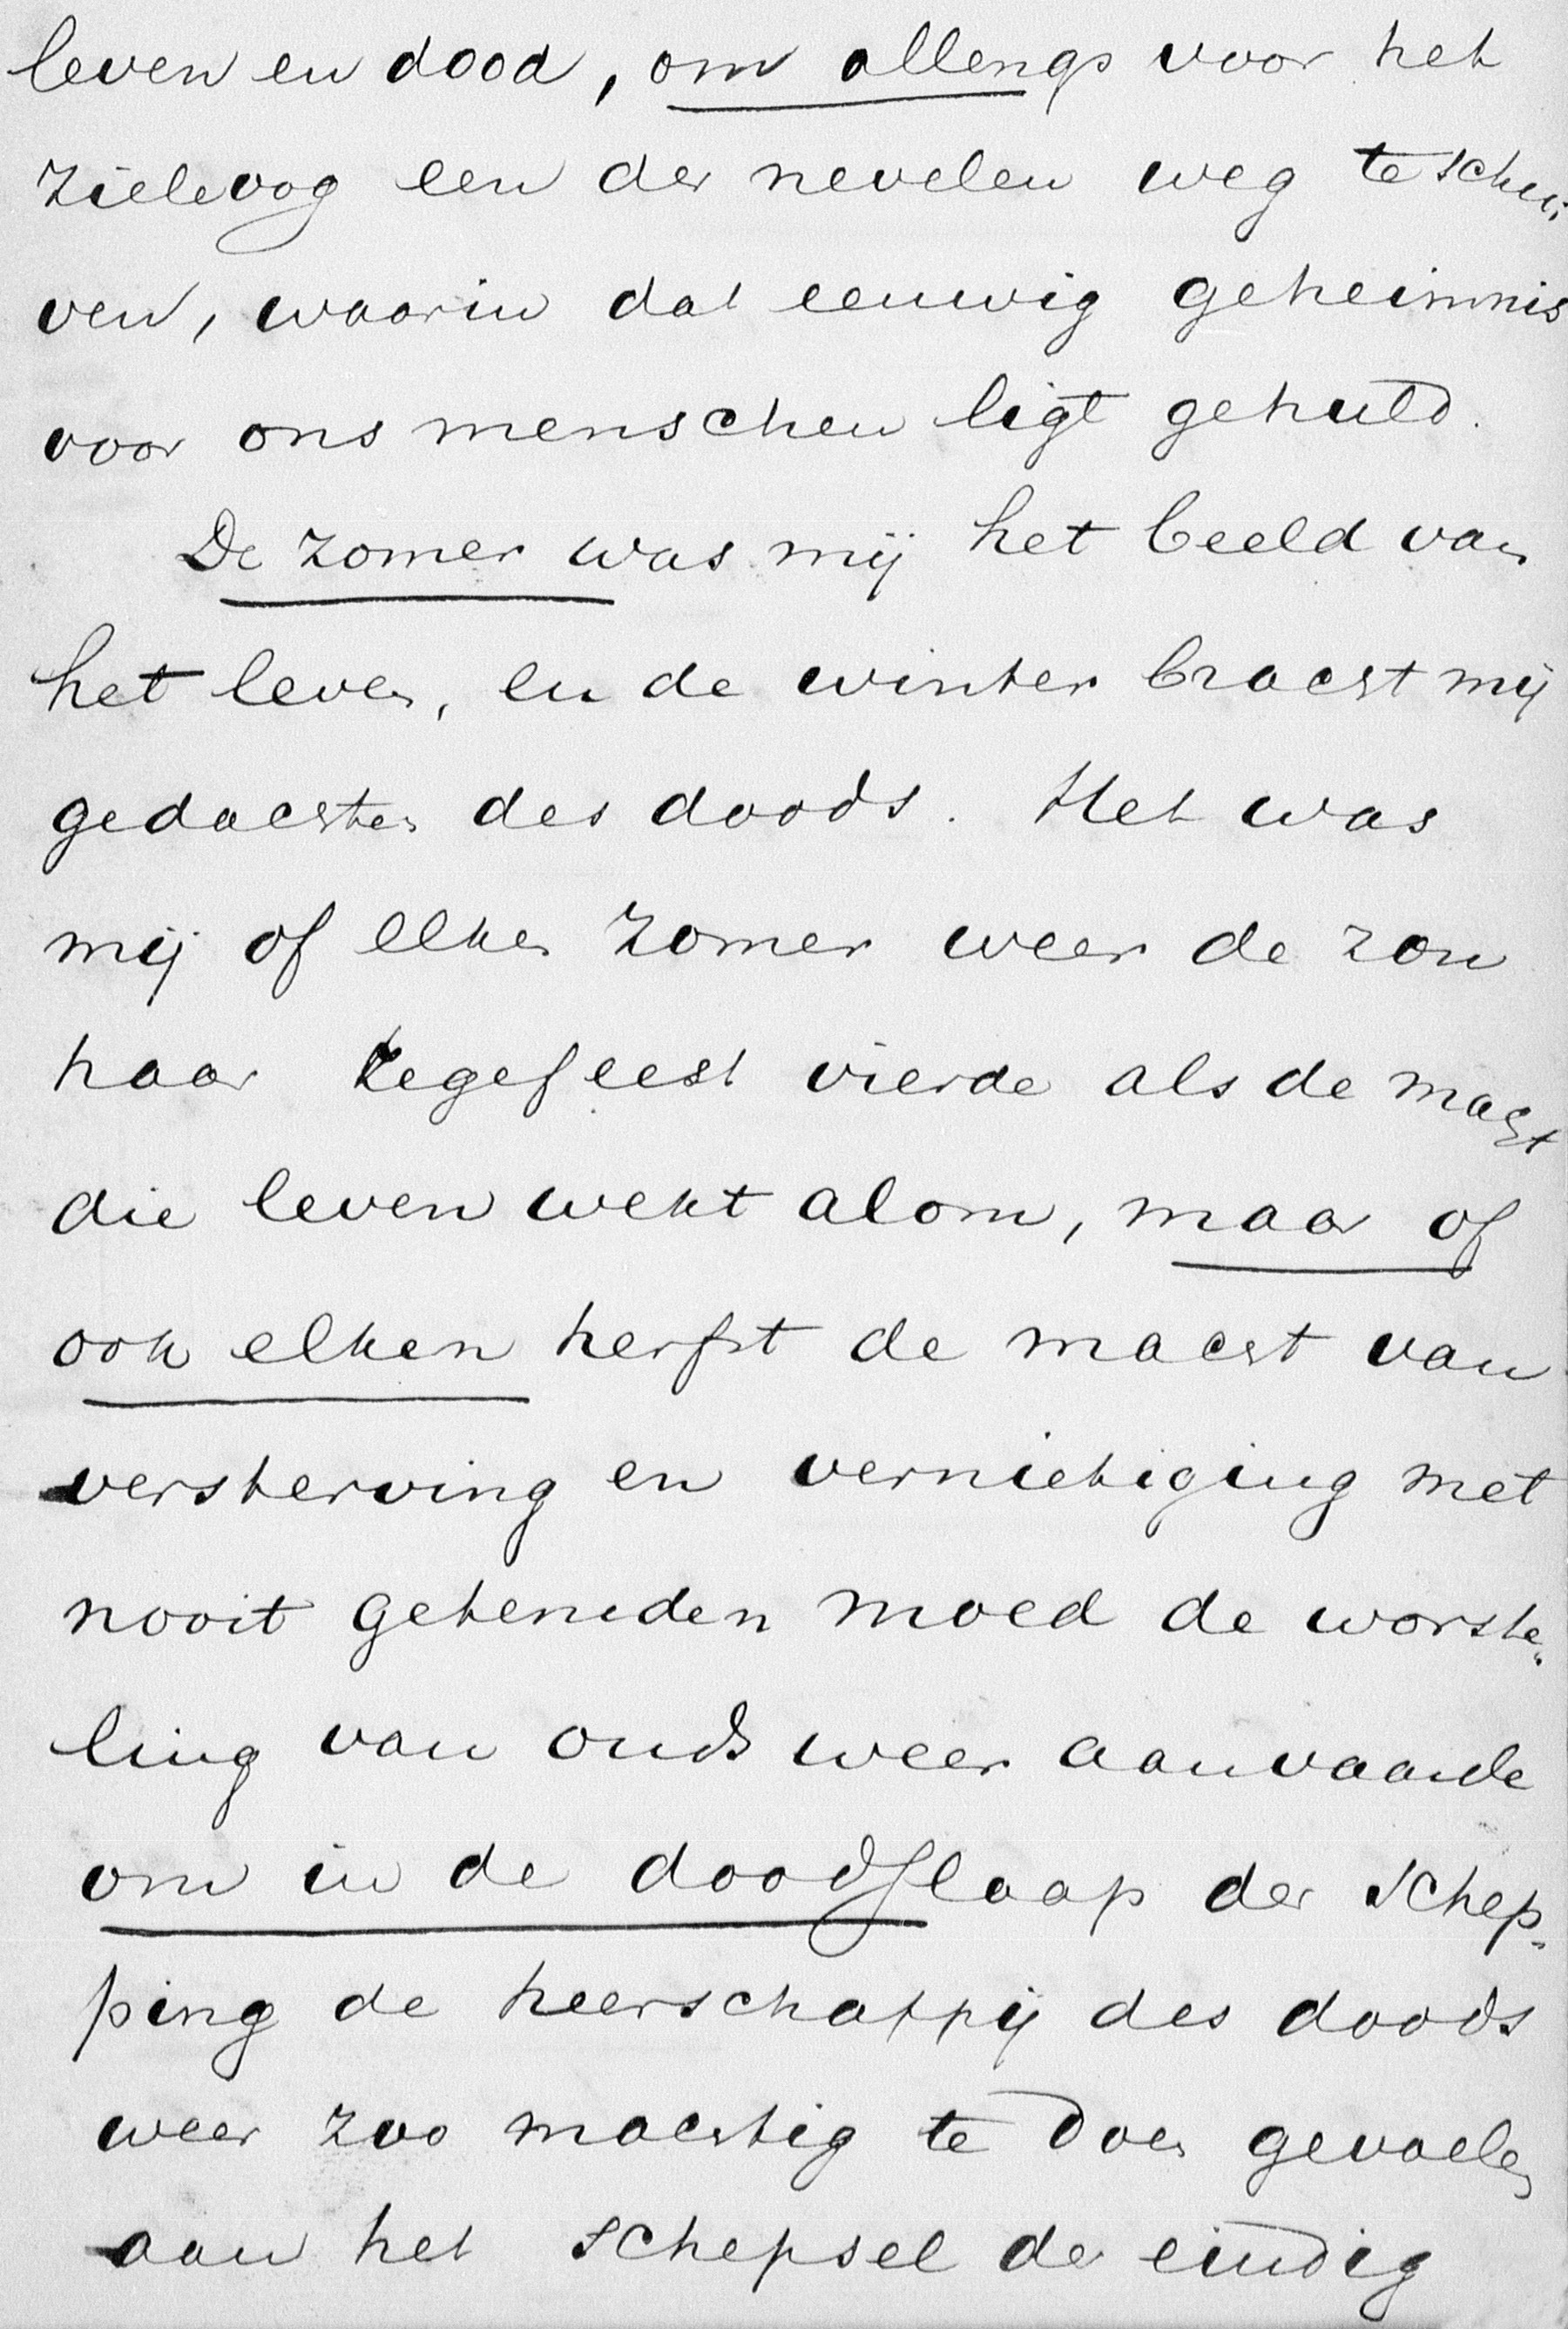 leven en dood, om allengs voor het
zieleoog een der nevelen weg te schui
ven, waarin dat eeuwig geheimnis
voor ons menschen ligt gehuld.
De zomer was mij het beeld van
het leven, en de winter bracht mij
gedachten des doods. Het was
mij of elken zomer weer de zon
haar zegefeest vierde als de macht
die leven wekt alom, maar of
ook elken herfst de macht van
versterving en vernietiging met
nooit getemden moed de worste„
ling van ouds weer aanvaarde
om in de doodslaap der schep„
ping de heerschappij des doods
weer zoo machtig te doen gevoelen
aan het schepsel der eindig